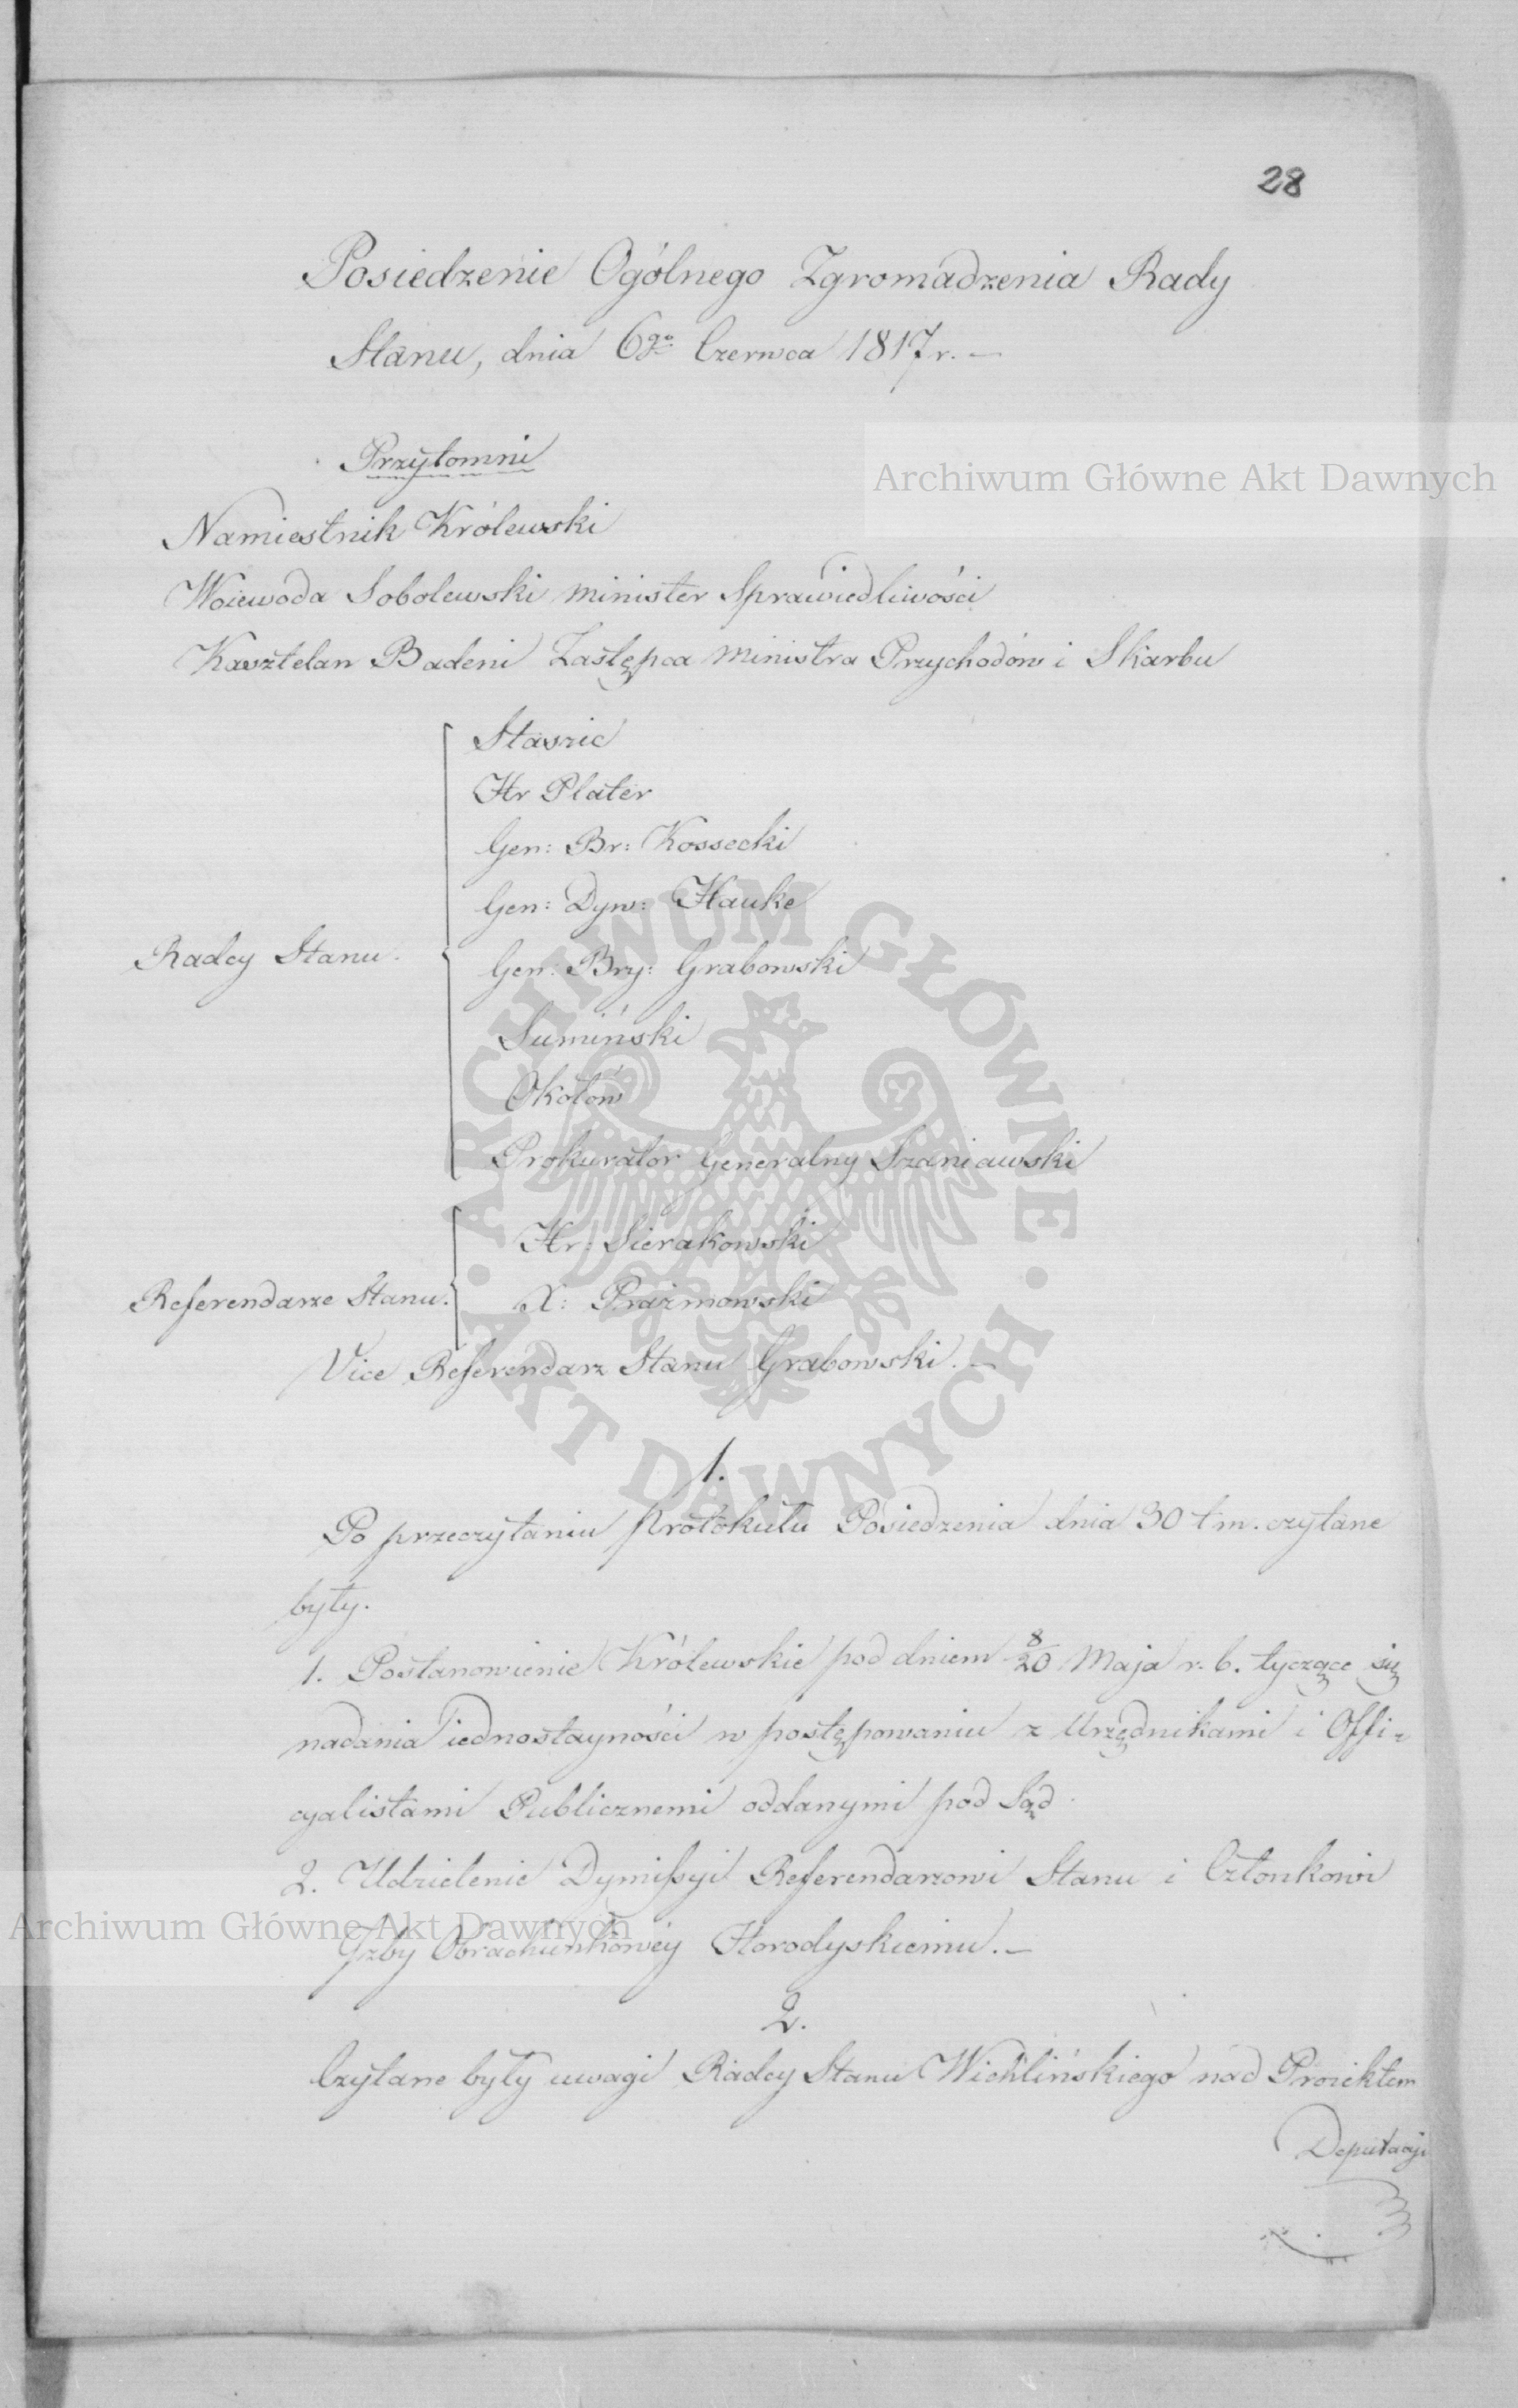 28
Posiedzenie Ogólnego Zgromadzenia Rady
Stanu, dnia 6go Czerwca 1817 r. —
Przytomni
Archiwum Główne Akt Dawnych
Namiestnik Królewski
Woiewoda Sobolewski Minister Sprawiedliwości
Kasztelan Badeni Zastępca Ministra Przychodów i Skarbu
Staszic
Hr Plater
Gen: Br: Kossecki
Gen: Dyw: Hauke
Radcy Stanu.
Gen: Bry: Grabowski
Sumiński
Okołów
Prokurator Generalny Szaniawski
Hr: Sierakowski
Referendarze Stanu.
X: Prażmowski
Vice Referendarz Stanu Grabowski. —
ARCHIWUM GŁÓWNE · AKT DAWNYCH ·
1.
Po przeczytaniu protokułu Posiedzenia dnia 30 t m. czytane
były.
1. Postanowienie Królewskie pod dniem 8/20 Maja r. b. tyczące się
nadania iednostayności w postępowaniu z Urzędnikami i Offi-
cyalistami Publicznemi oddanymi pod Sąd.
2. Udzielenie Dymissyi Referendarzowi Stanu i Członkowi
Archiwum Główne Akt Dawnych
Izby Obrachunkowéy Horodyskiemu. —
2.
Czytane były uwagi Radcy Stanu Wichlińskiego nad Proiektem
Deputacyi